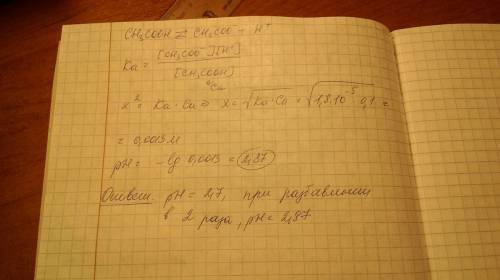 CH₃COOH ⇄ CH₃COO⁻ + H⁺
Ka = [CH₃COO⁻][H⁺] / [CH₃COOH]
Ca
x² = Ka · Ca ⇒ x = √Ka · Ca = √1,8·10⁻⁵ · 0,1 =
= 0,0013 м
pH = - lg 0,0013 = 2,87
Ответ. pH = 2,7, при разбавлении
в 2 раза, pH = 2,87